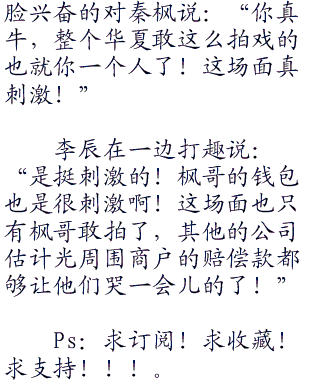 脸兴奋的对秦枫说：“你真
牛，整个华夏敢这么拍戏的
也就你一个人了！这场面真
刺激！”
李辰在一边打趣说：
“是挺刺激的！枫哥的钱包
也是很刺激啊！这场面也只
有枫哥敢拍了，其他的公司
估计光周围商户的赔偿款都
够让他们哭一会儿的了！”
Ps：求订阅！求收藏！
求支持！！！。